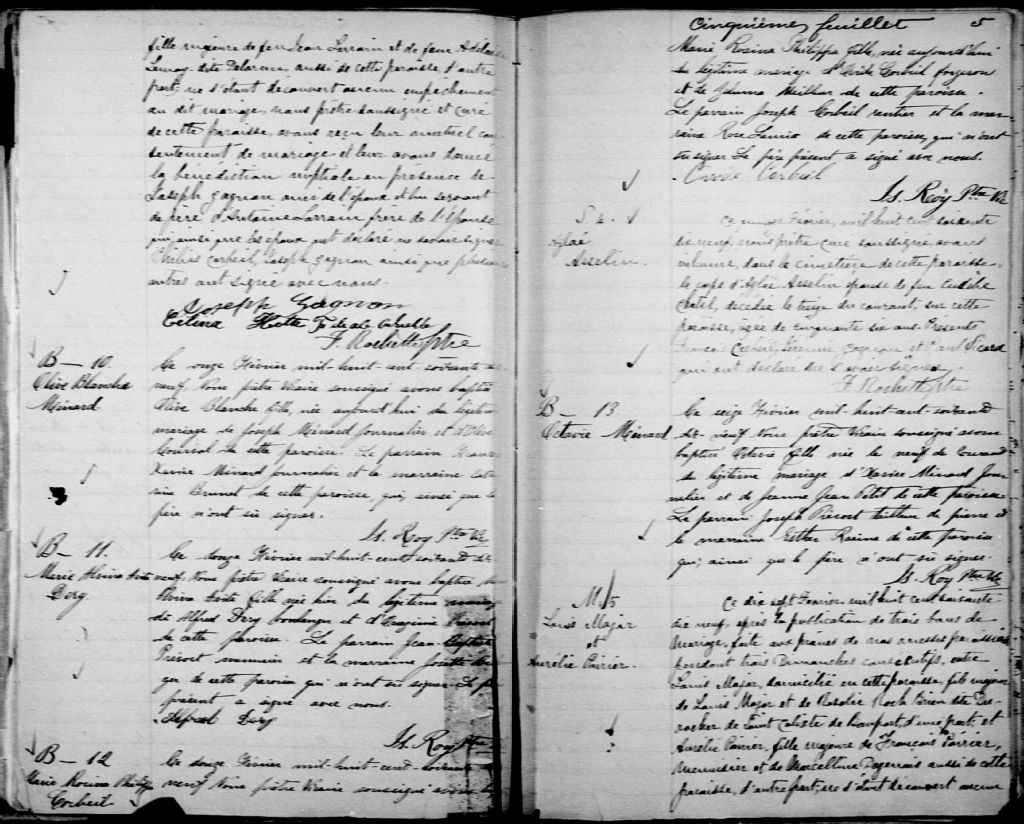 fille majeure de feu Jean Lorrain et de feue
Lemay dite Delorme aussi de cette paroisse d'autre
part; ne s'étant découvert aucun empêchement
au dit mariage, nous prêtre soussigné et curé
de cette paroisse, avons reçu leur mutuel con
sentement de mariage et leur avons donné
la bénédiction nuptiale en présence de
Joseph Gagnon ami de l'époux et lui servant
de père d'Antoine Lorrain frère de l'épouse
qui ainsi que les époux ont déclaré ne savoir signer
Corbeil, Joseph Gagnon ainsi que plusieurs
autres ont signé avec nous.
Joseph Gagnon
Célina
F. Rochette Ptre
B — 10.
Olive Blanche
Ménard.
Ce onze Février mil-huit-cent-soixante dix
neuf Nous prêtre Vicaire soussigné avons baptisé
Olive Blanche fille, née aujourd'hui du légitime
mariage de Joseph Ménard journalier et d'Olive
de cette paroisse. Le parrain
Xavier Ménard journalier et la marraine
Brunet de cette paroisse, qui, ainsi que le
père n'ont su signer.
Is. Roy Ptre Vic
B — 11.
Marie
Dery
Ce douze Février mil-huit-cent-soixante dix
neuf Nous prêtre Vicaire soussigné avons baptisé
fille née hier du légitime mariage
de Alfred Dery boulanger et d'
de cette paroisse. Le parrain Jean Baptiste
Prévost et la marraine
de cette paroisse qui n'ont su signer. Le père
présent a signé avec nous.
Alfred Dery
Is. Roy Ptre
B — 12
Marie Rosina Philippe
Corbeil
Ce douze Février mil-huit-cent-soixante
neuf Nous prêtre Vicaire soussigné avons
Cinquième feuillet 5
Marie Rosina Philippe fille, née aujourd'hui
du légitime mariage d'Ovide Corbeil forgeron
et de de cette paroisse.
Le parrain Joseph Corbeil rentier et la mar-
raine Rose de cette paroisse, qui n'ont
su signer. Le père présent a signé avec nous.
Ovide Corbeil
Is. Roy Ptre Vic
S 2.
Aglaé
Asselin.
Ce Février, mil huit cent soixante
dix neuf, nous prêtre curé soussigné, avons
inhumé, dans le cimetière de cette paroisse,
le corps d'Aglaé Asselin épouse de feu
décédée le treize du courant, sur cette
paroisse, agée de cinquante six ans. Présents
François Corbeil, Gagnan et Paul Sicard
qui ont déclaré ne savoir signer.
F. Rochette Ptre
B — 13.
Octavie Ménard
Ce seize Février mil-huit-cent-soixante
dix-neuf Nous prêtre Vicaire soussigné avons
baptisé Octavie fille née le neuf du courant
du légitime mariage d'Xavier Ménard jour-
nalier et de Jeanne Jean Petit de cette paroisse
Le parrain Joseph Prévost tailleur de pierre et
la marraine Esther Racine de cette paroisse
qui, ainsi que le père n'ont su signer.
Is. Roy Ptre Vic
M. 5
Louis Major
et
Aurélie Poirier.
Ce dix sept Février, mil huit cent soixante
dix neuf, après la publication de trois bans de
mariage, faite aux prônes de nos messes paroissiales
pendant trois Dimanches consécutifs, entre
Louis Major, domicilié en cette paroisse, fils majeur
de Louis Major et de Rosalie Roch Brien dite Des-
rocher de Saint Calixte de d'une part; et
Aurélie Poirier, fille majeure de François Poirier,
menuisier et de Marcelline Dagenais aussi de cette
paroisse, d'autre part; ne s'étant découvert aucun